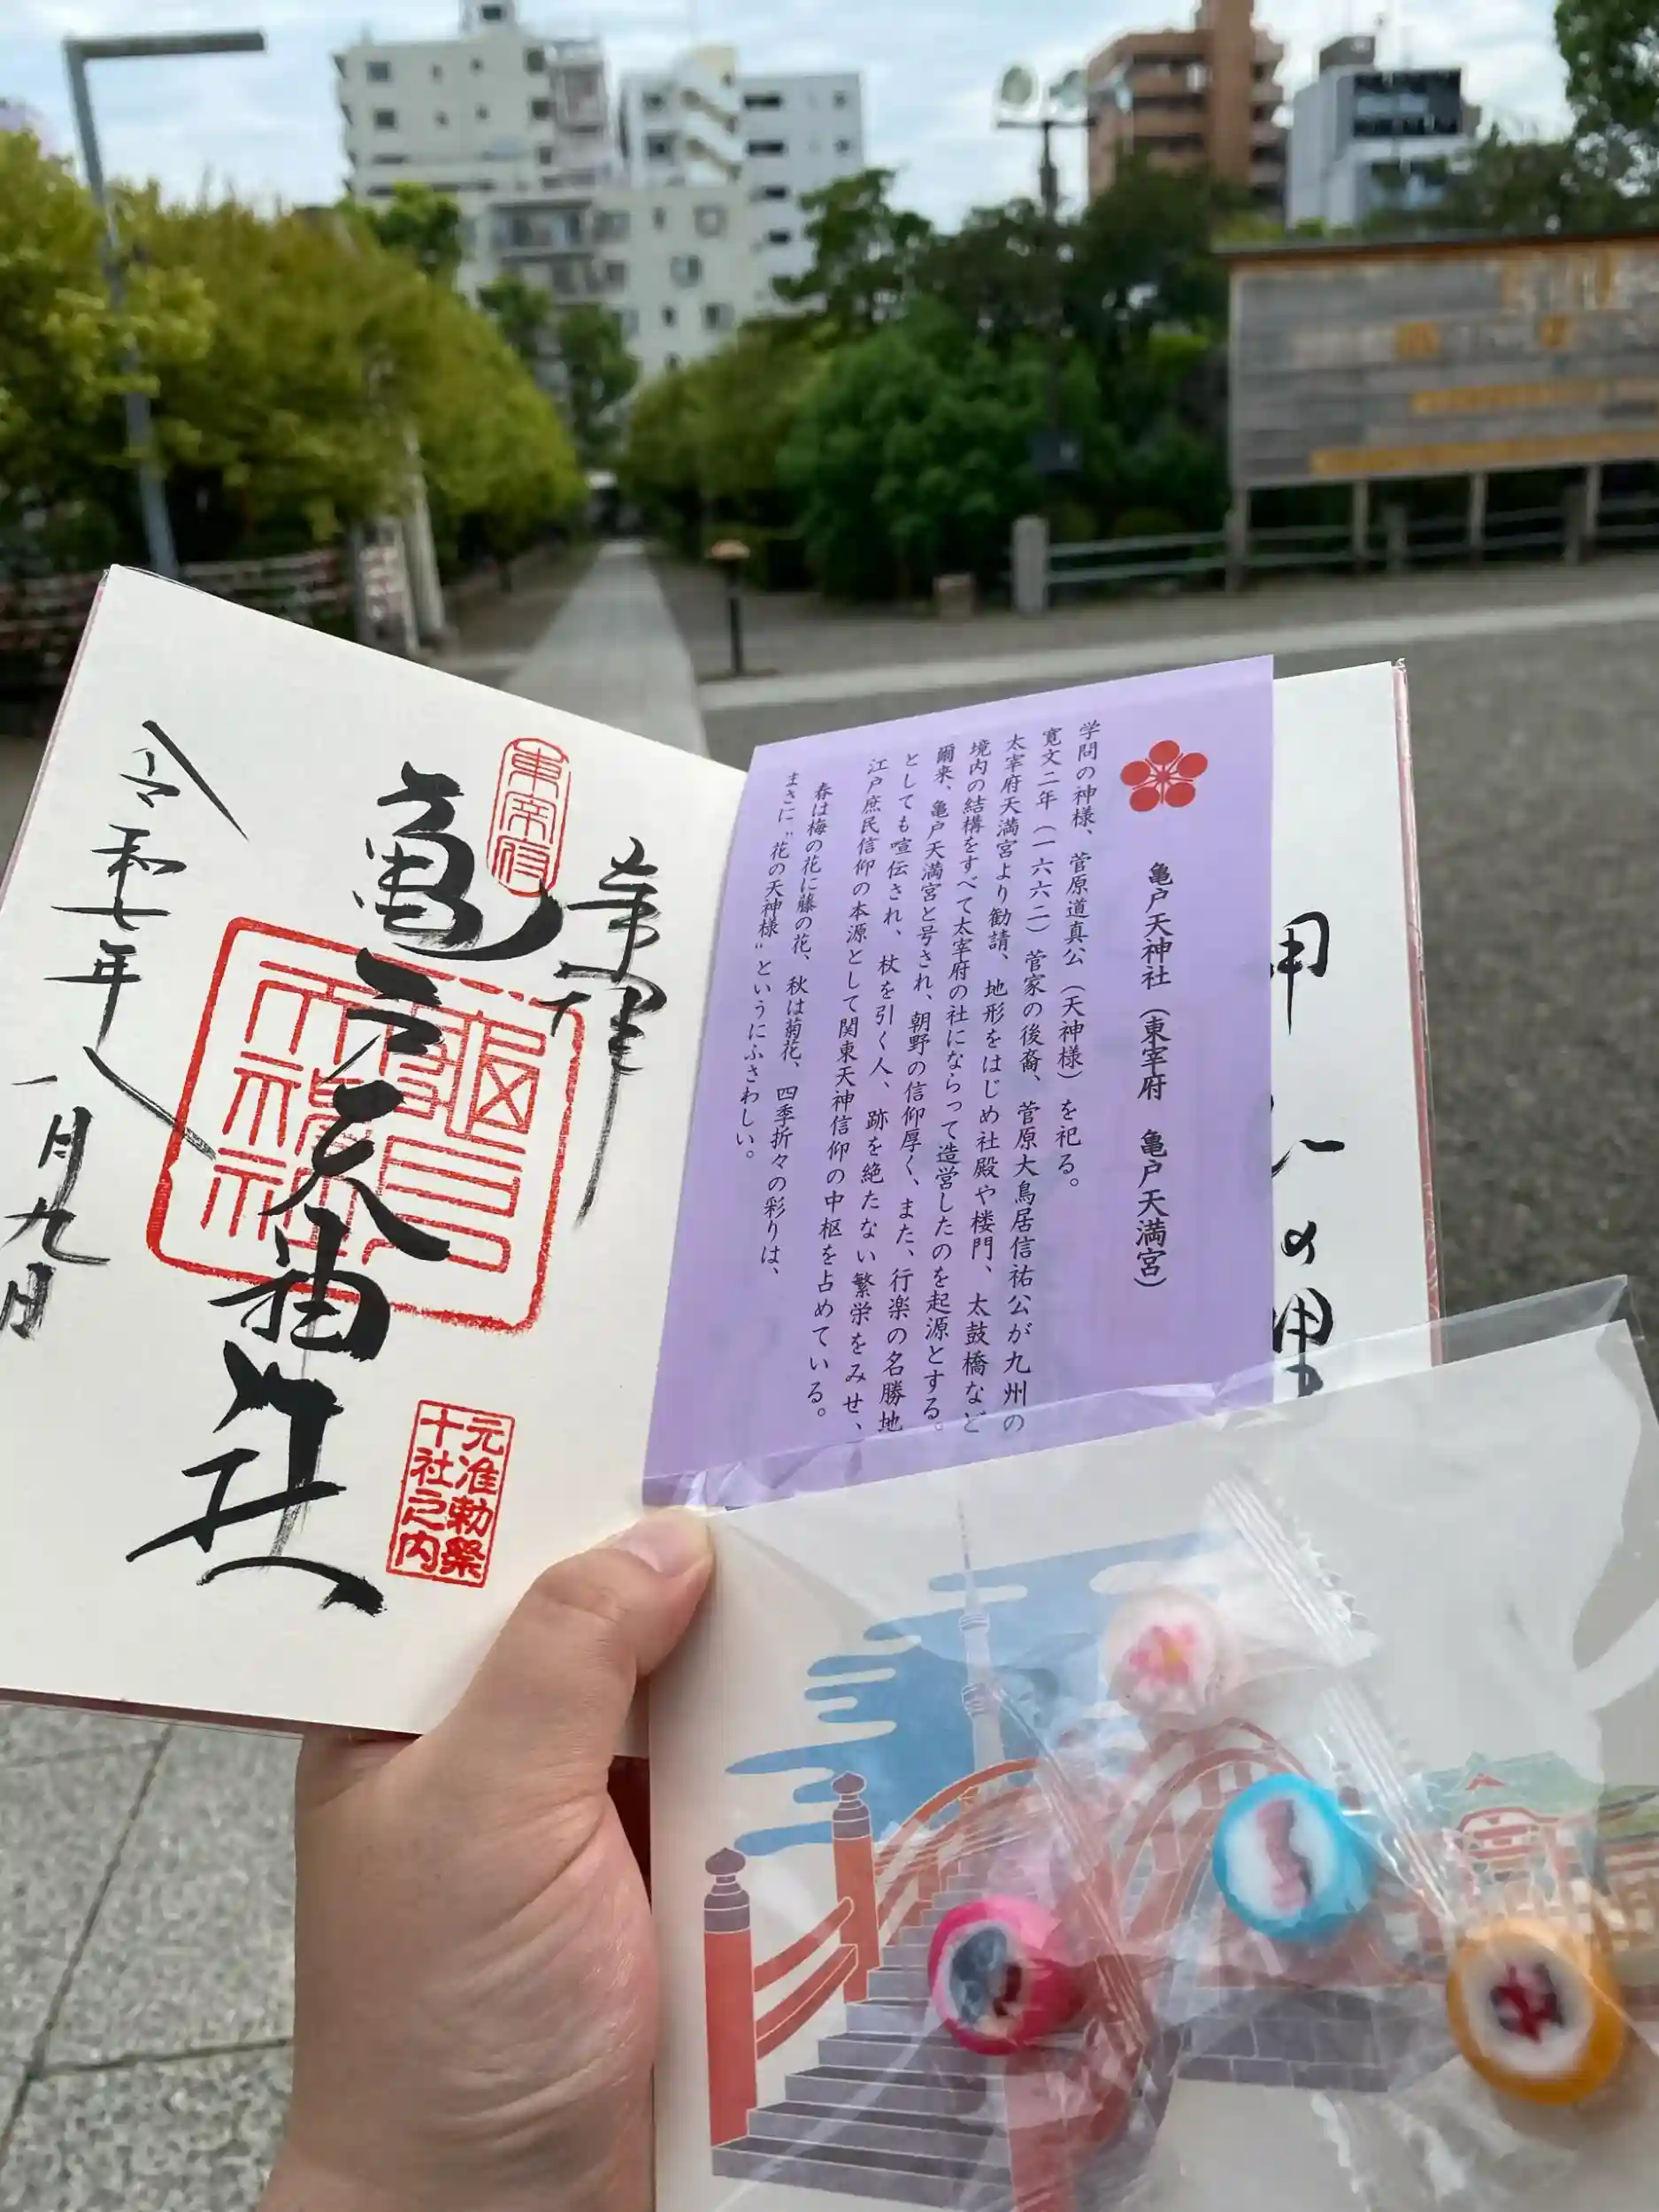 亀戸天神社（東宰府　亀戸天満宮）
学問の神様、菅原道真公（天神様）を祀る。
寛文二年（一六六二）菅家の後裔、菅原大鳥居信祐公が九州の
太宰府天満宮より勧請、地形をはじめ社殿や楼門、太鼓橋など
境内の結構をすべて太宰府の社にならって造営したのを起源とする。
爾来、亀戸天満宮と号され、朝野の信仰厚く、また、行楽の名勝地
としても喧伝され、杖を引く人、跡を絶たない繁栄をみせ、
江戸庶民信仰の本源として関東天神信仰の中枢を占めている。
春は梅の花に藤の花、秋は菊花、四季折々の彩りは、
まさに〝花の天神様〟というにふさわしい。
奉拝
東宰府
亀戸天神社
元准勅祭
十社之内
令和七年
八月九日